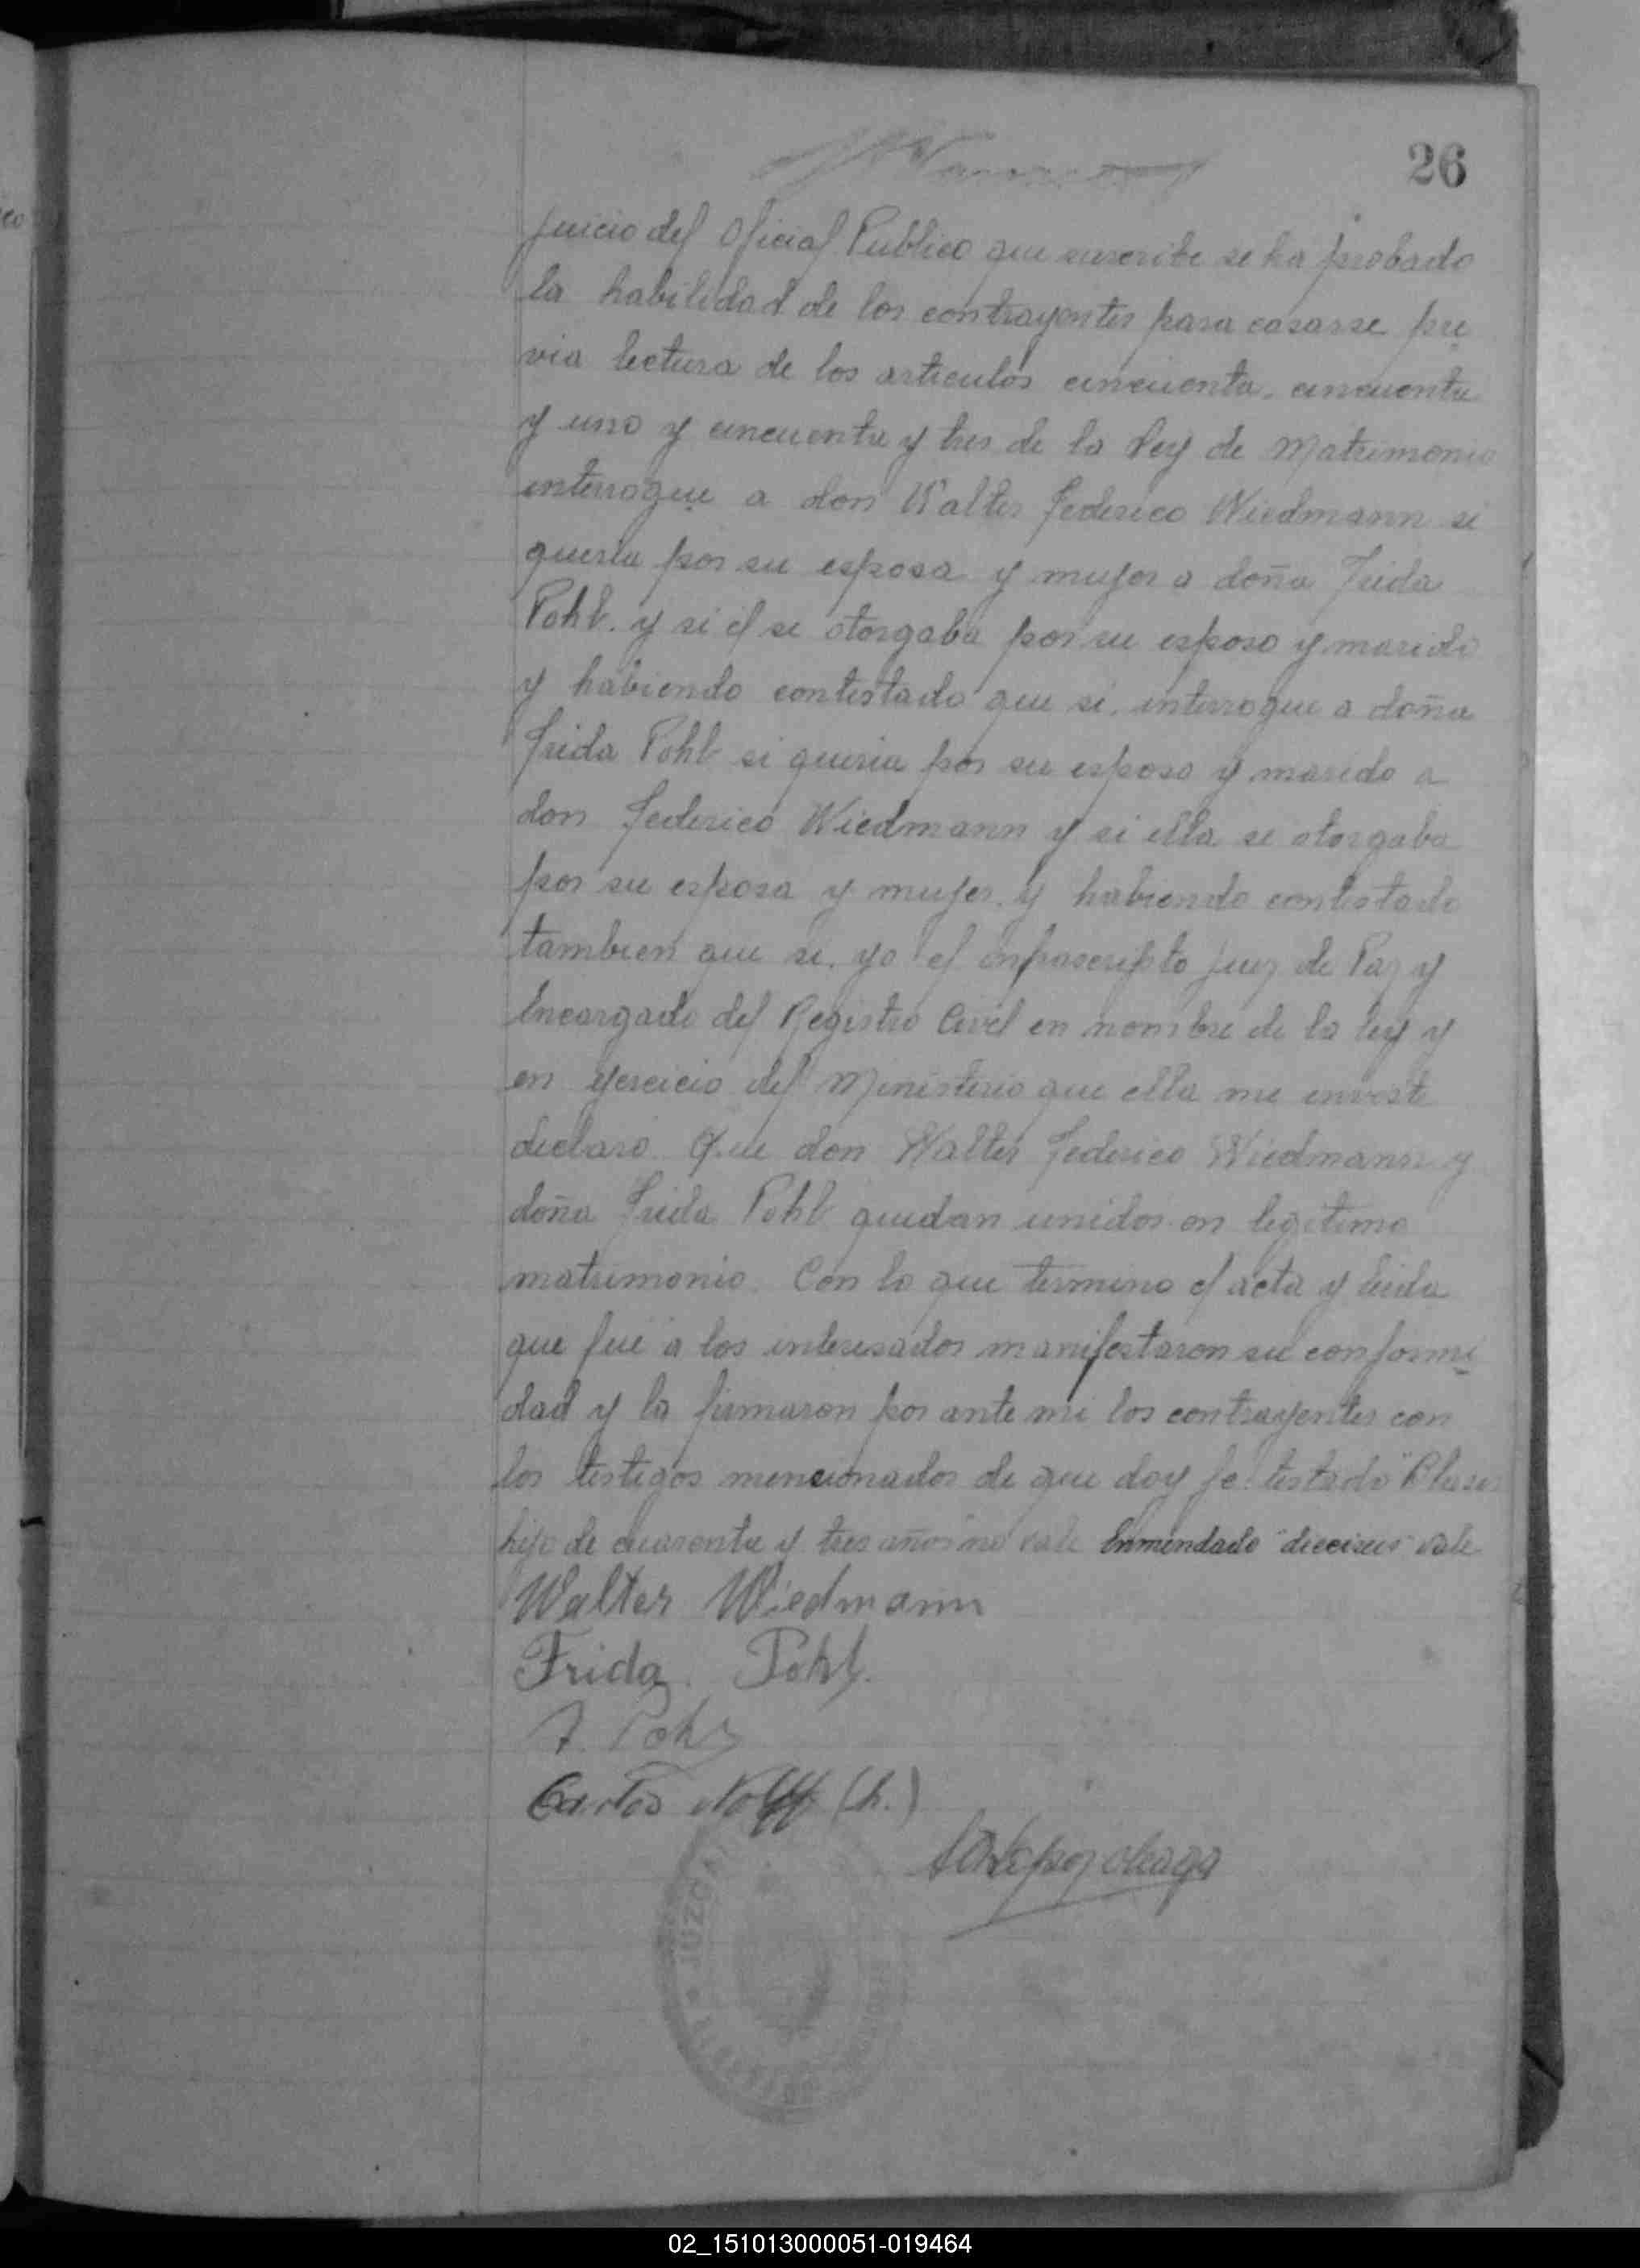 26
juicio del Oficial Publico que suscribe se ha probado
la habilidad de los contrayentes para casarse pre
via lectura de los articulos cincuenta, cincuenta
y uno y cincuenta y tres de la Ley de Matrimonio
interrogue a don Walter Federico Wiedmann si
queria por su esposa y mujer a doña Frida
Pohl. y si el se otorgaba por su esposo y marido
y habiendo contestado que si. interrogue a doña
Frida Pohl si queria por su esposo y marido a
don Federico Wiedmann y si ella se otorgaba
por su esposa y mujer. y habiendo contestado
tambien que si. yo el infrascripto Juez de Paz y
Encargado del Registro Civil en nombre de la ley y
en ejercicio del Ministerio que ella me inviste
declaro. Que don Walter Federico Wiedmann y
doña Frida Pohl quedan unidos en legitimo
matrimonio. Con lo que termino el acta y leida
que fué a los interesados manifestaron su conformi
dad y la firmaron por ante mi los contrayentes con
los testigos mencionados de que doy fe. testado "
hijo de cuarenta y tres años no vale Enmendado "dieciseis" vale
Walter Wiedmann
Frida Pohl.
A. Pohl
Carlos Nolff (h.)
JUZGA
02_151013000051-019464